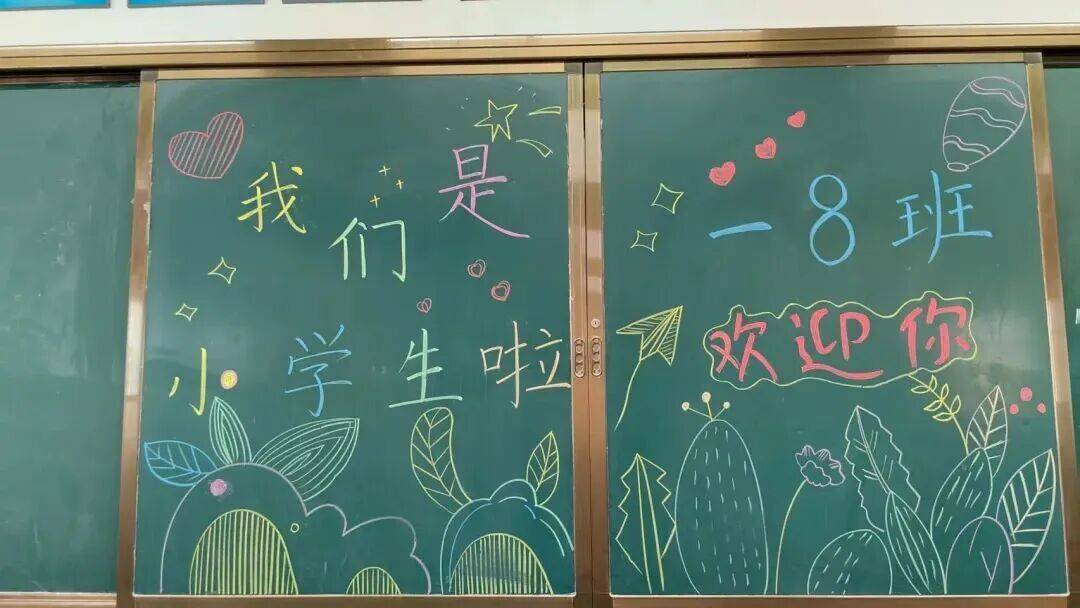 我们是
小学生啦
一8班
欢迎你